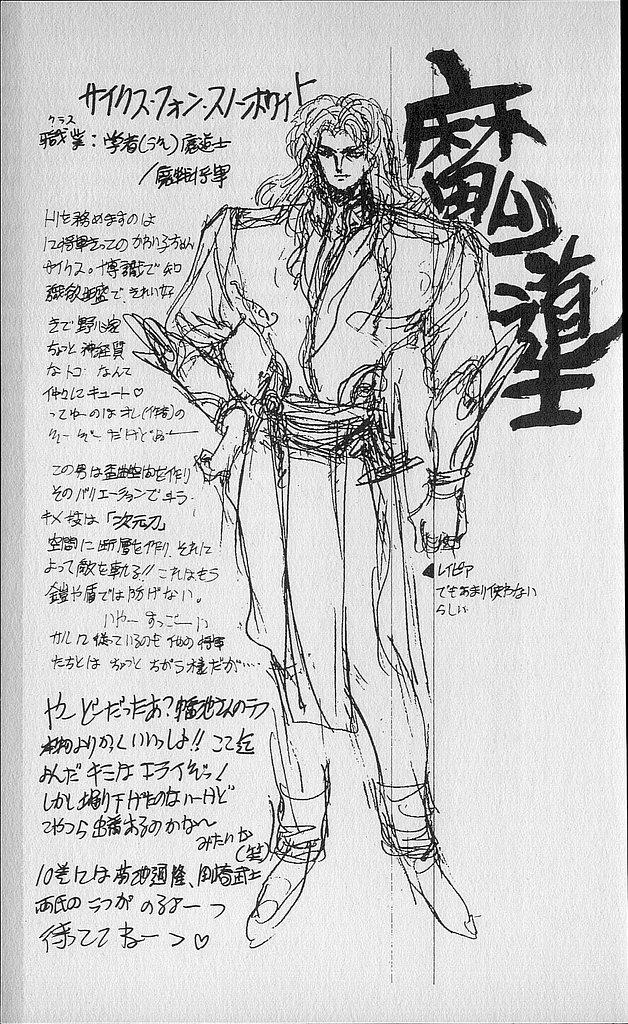 サイクス・フォン・スノーホワイト
クラス
職業：学者(うそ)魔道士
/魔戦将軍
魔道士
トリを務めますのは
12将軍きってのかわり者さん
サイクス。博識で知
識欲旺盛で、きれい好
きで野心家
ちょっと神経質
なトコなんて
仲々にキュート♡
ってゆーのはオレ(作者)の
だけどねー
この男は歪曲空間を作り
そのバリエーションで
キメ技は「次元刀」
空間に断層を作り、それに
よって敵を斬る!!これはもう
鎧や盾では防げない。
いやーすっごーい
カルに従っているのも他の将軍
たちとはちょっとちがう様だが…
レイピア
でもあまり使わない
らしい
やーどーだったあ?幡池さんのラフ
本物よりかっくいいっしょ!!ここ迄
よんだキミはエライぞっ!
しかし掘り下げたのないーけど
こやつら出番あるのかな〜
みたいな
(笑)
10巻には菊池通隆、岡崎武士
両氏のこつがのるよーっ
待っててねーっ♡